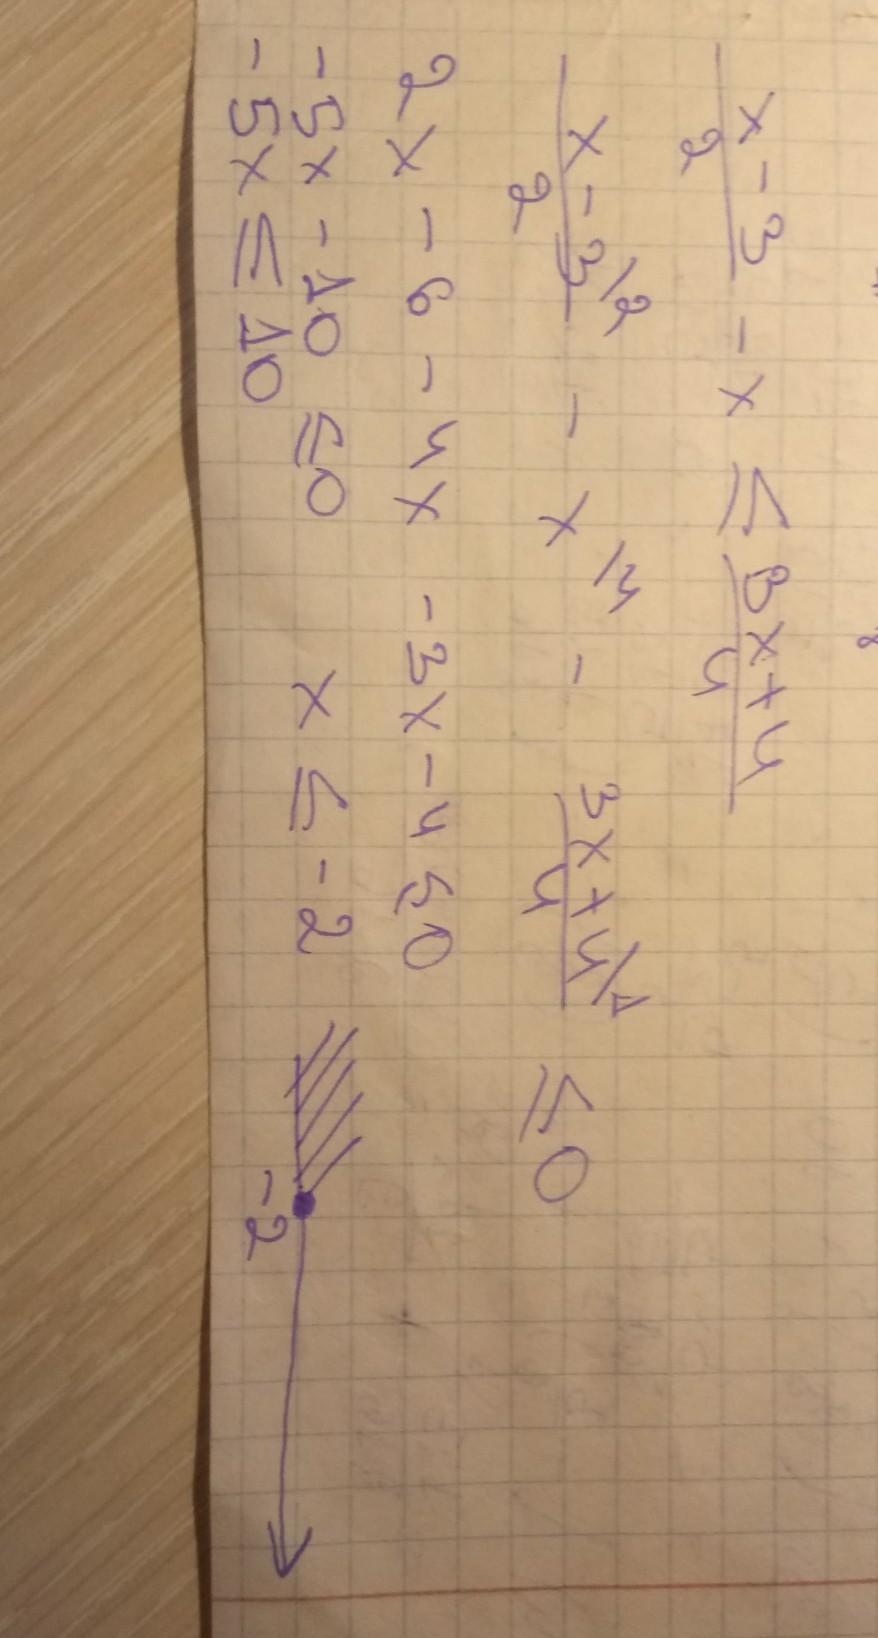 x-3/2 - x ≤ 3x+4/4
x-3/2 /2 - x /4 - 3x+4/4 /1 ≤ 0
2x - 6 - 4x - 3x - 4 ≤ 0
-5x - 10 ≤ 0 x ≤ -2
-5x ≤ 10 -2